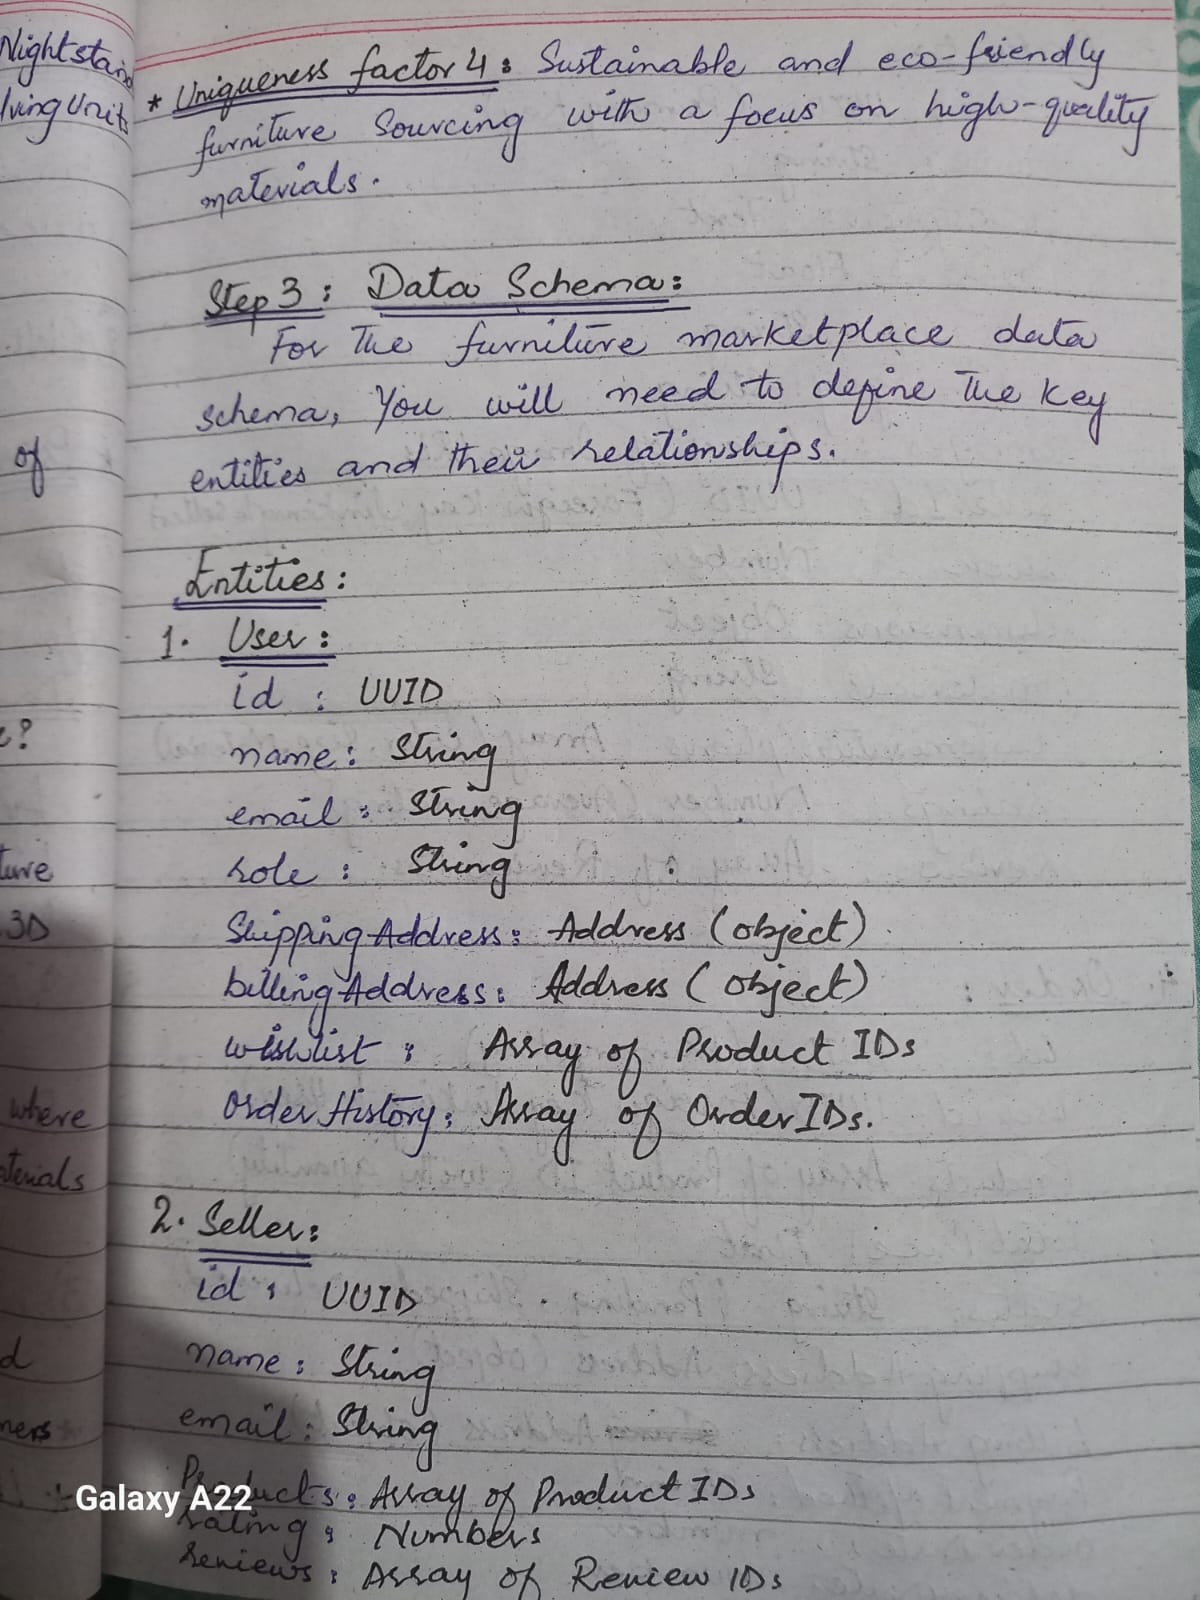 Nightstand
lving Units
of
?
ture
3D
where
terials
d
ners
* Uniqueness factor 4: Sustainable and eco-friendly
furniture Sourcing with a focus on high-quality
materials.
Step 3: Data Schema:
For The furniture marketplace data
schema, You will need to define The Key
entities and their relationships.
Entities:
1. User:
id : UUID
name: String
email: String
role: String
ShippingAddress: Address (object)
billingAddress: Address (object)
wishlist: Array of Product IDs
OrderHistory: Array of OrderIDs.
2. Seller:
id: UUID
name: String
email: String
Products: Array of Product IDs
rating: Numbers
reviews: Array of Review IDs
Galaxy A22